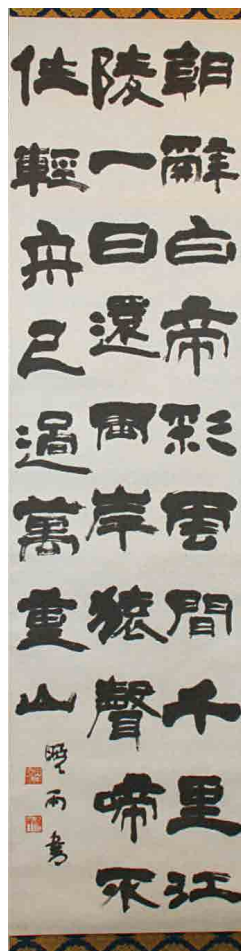 朝辭白帝彩雲間千里江
陵一日還兩岸猿聲啼不
住輕舟已過萬重山
曉雨書